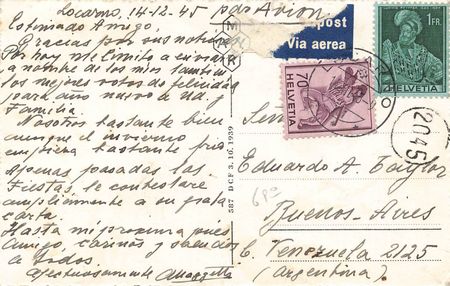 Locarno, 14-12-45
par Avion
Estimado Amigo,
Gracias por sus
Por hoy me limito a enviar
a nombre de los mios tambien
los mejores votos de felicidad
para año nuevo a Ud. y
Familia.
Nosotros bastante bien
aunque el invierno
empieza bastante frio
Apenas pasadas las
Fiestas le contestaré
ampliamente a su grata
carta.
Hasta mi proxima pues
Amigo, cariños y saludos
a todos.
afectuosamente
post
Via aerea
1FR.
HELVETIA
70
HELVETIA
2045
587 DCF 3. 10. 1939
Señor
Eduardo A. Taylor
6Pº
Buenos-Aires
C. Venezuela 2125
(argentina)